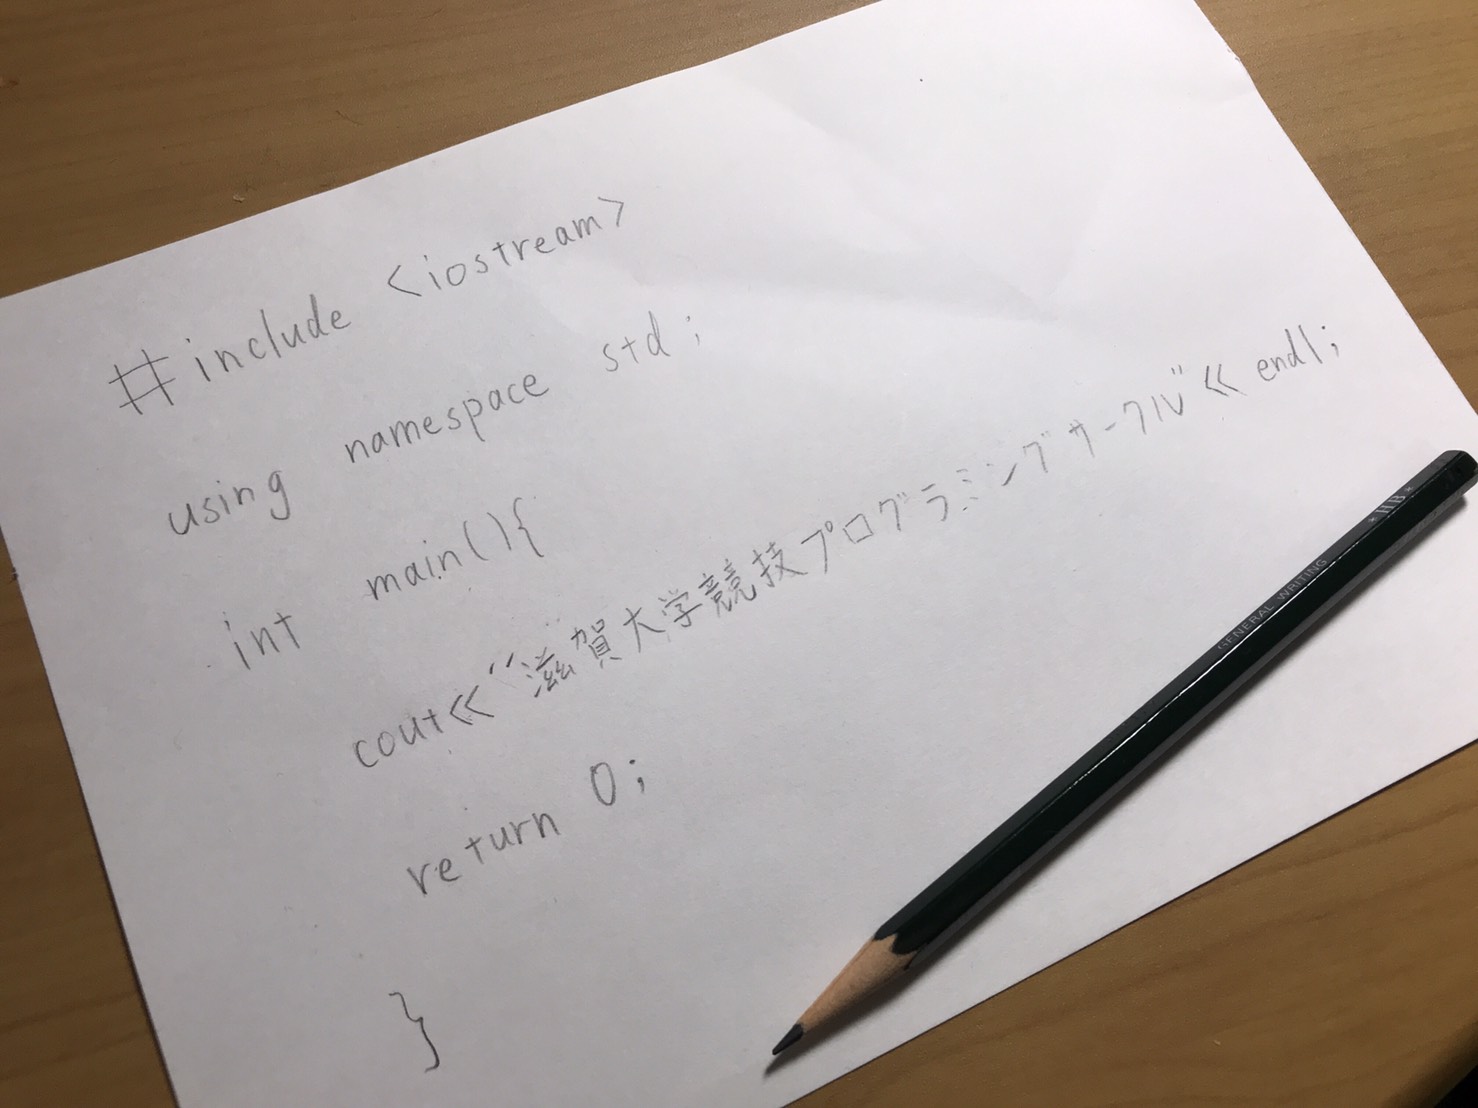 #include <iostream>
using namespace std;
int main(){
cout<<"滋賀大学競技プログラミングサークル"<< endl;
return 0;
}
GENERAL WRITING * HB *